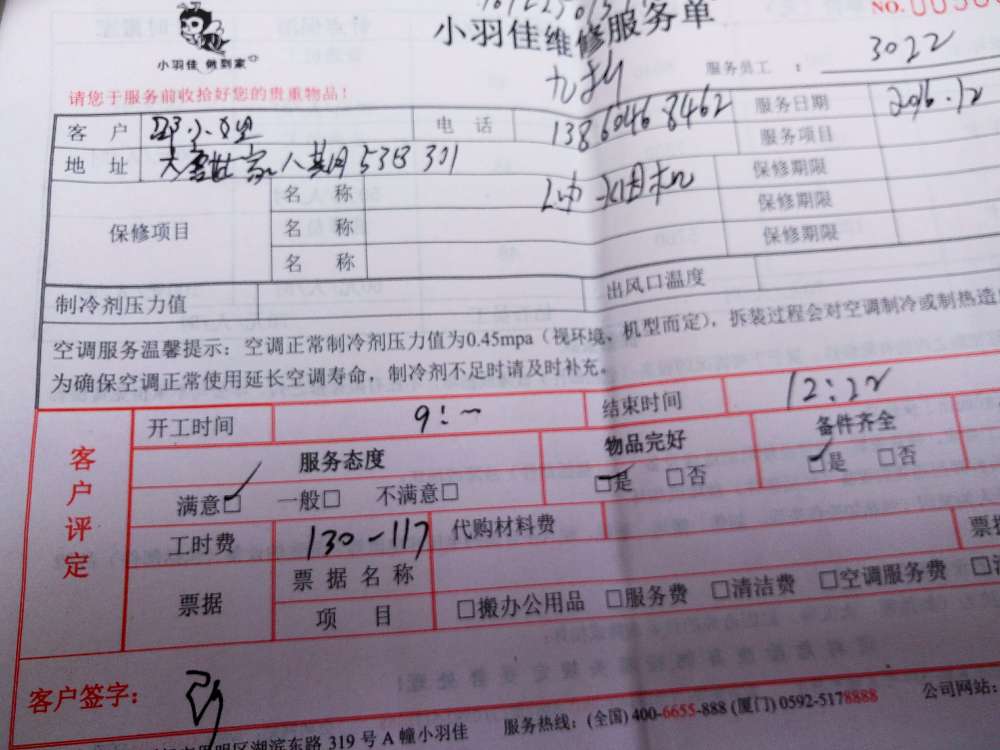 小羽佳维修服务单
NO.
小羽佳 俐到家
九折
服务员工 : 3022
请您于服务前收拾好您的贵重物品!
客户 小姐 电话 13860468462 服务日期 2016.12
地址 53B 301 服务项目
保修项目 名称 保修期限
名称 保修期限
名称 保修期限
制冷剂压力值 出风口温度
空调服务温馨提示:空调正常制冷剂压力值为0.45mpa(视环境、机型而定),拆装过程会对空调制冷或制热造
为确保空调正常使用延长空调寿命,制冷剂不足时请及时补充。
客户评定
开工时间 9:~ 结束时间 12:22
服务态度 物品完好 备件齐全
满意☑ 一般□ 不满意□ ☑是 □否 ☑是 □否
工时费 130-117 代购材料费 票据
票据 票据名称
项目 □搬办公用品 □服务费 □清洁费 □空调服务费
客户签字:
湖滨东路 319 号 A 幢小羽佳 服务热线:(全国) 400-6655-888 (厦门) 0592-5178888 公司网站: